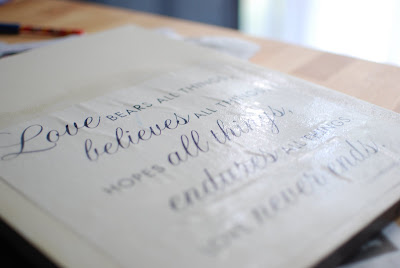 Love BEARS ALL THINGS
believes ALL THINGS,
HOPES all things,
endures ALL THINGS
love never ends.